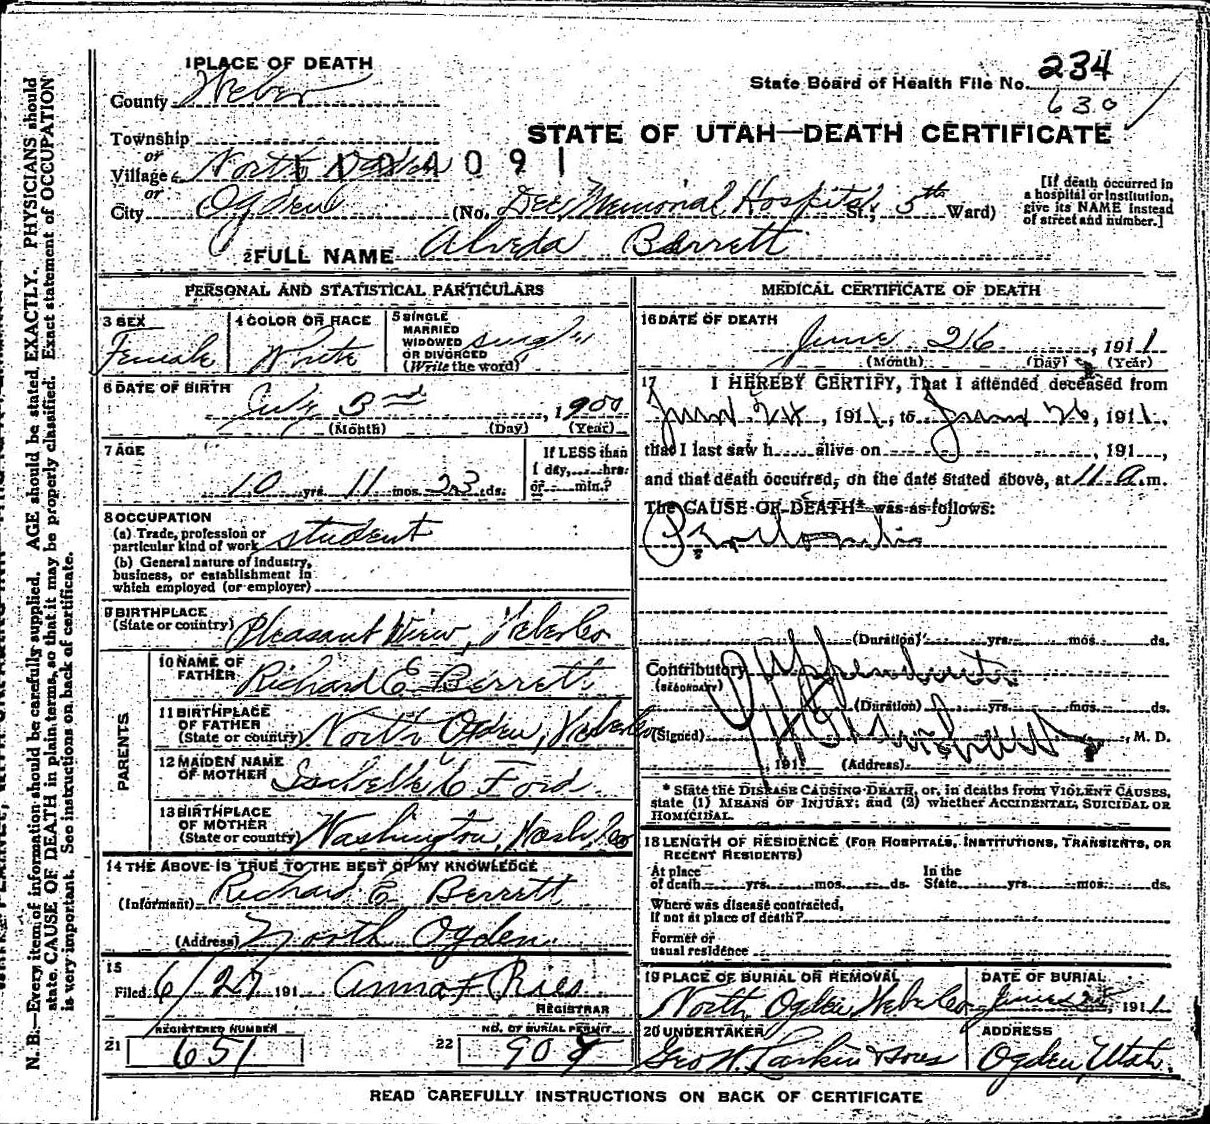 1 PLACE OF DEATH
County Weber
State Board of Health File No. 234
630
Township
or
Village North Ogden
or
STATE OF UTAH—DEATH CERTIFICATE
City Ogden (No. Dee Memorial Hospital St.; 5th Ward)
[If death occurred in a hospital or institution, give its NAME instead of street and number.]
2 FULL NAME Alveda Berrett
PERSONAL AND STATISTICAL PARTICULARS
3 SEX Female
4 COLOR OR RACE White
5 SINGLE MARRIED WIDOWED OR DIVORCED (Write the word) single
6 DATE OF BIRTH July 3rd, 1900
(Month) (Day) (Year)
7 AGE 10 yrs. 11 mos. 23 ds.
If LESS than 1 day, hrs. or min.?
8 OCCUPATION
(a) Trade, profession or particular kind of work student
(b) General nature of industry, business, or establishment in which employed (or employer)
9 BIRTHPLACE (State or country) Pleasant View, Weber Co
PARENTS
10 NAME OF FATHER Richard E Berrett
11 BIRTHPLACE OF FATHER (State or country) North Ogden, Weber Co
12 MAIDEN NAME OF MOTHER Isabelle C Ford
13 BIRTHPLACE OF MOTHER (State or country) Washington, Wash. Co
14 THE ABOVE IS TRUE TO THE BEST OF MY KNOWLEDGE
(Informant) Richard E Berrett
(Address) North Ogden
15
Filed 6/27 191 Anna F Ries
REGISTRAR
REGISTERED NUMBER
21 651
NO. OF BURIAL PERMIT
22 908
MEDICAL CERTIFICATE OF DEATH
16 DATE OF DEATH
June 26, 1911
(Month) (Day) (Year)
17 I HEREBY CERTIFY, That I attended deceased from
June 24, 1911, to June 26, 1911,
that I last saw h alive on , 191 ,
and that death occurred, on the date stated above, at 11 a.m.
The CAUSE OF DEATH* was as follows:
Peritonitis
(Duration) yrs. mos. ds.
Contributory Appendicitis
(SECONDARY)
(Duration) yrs. mos. ds.
(Signed) , M. D.
, 191 (Address)
* State the DISEASE CAUSING DEATH, or, in deaths from VIOLENT CAUSES,
state (1) MEANS OF INJURY; and (2) whether ACCIDENTAL, SUICIDAL OR
HOMICIDAL.
18 LENGTH OF RESIDENCE (FOR HOSPITALS, INSTITUTIONS, TRANSIENTS, OR
RECENT RESIDENTS)
At place of death yrs. mos. ds. In the State yrs. mos. ds.
Where was disease contracted,
if not at place of death?
Former or
usual residence
19 PLACE OF BURIAL OR REMOVAL North Ogden Weber Co
DATE OF BURIAL June 1911
20 UNDERTAKER Geo W. Larkin & Sons
ADDRESS Ogden, Utah.
READ CAREFULLY INSTRUCTIONS ON BACK OF CERTIFICATE
N. B.—Every item of information should be carefully supplied. AGE should be stated EXACTLY. PHYSICIANS should
state CAUSE OF DEATH in plain terms, so that it may be properly classified. Exact statement of OCCUPATION
is very important. See instructions on back of certificate.